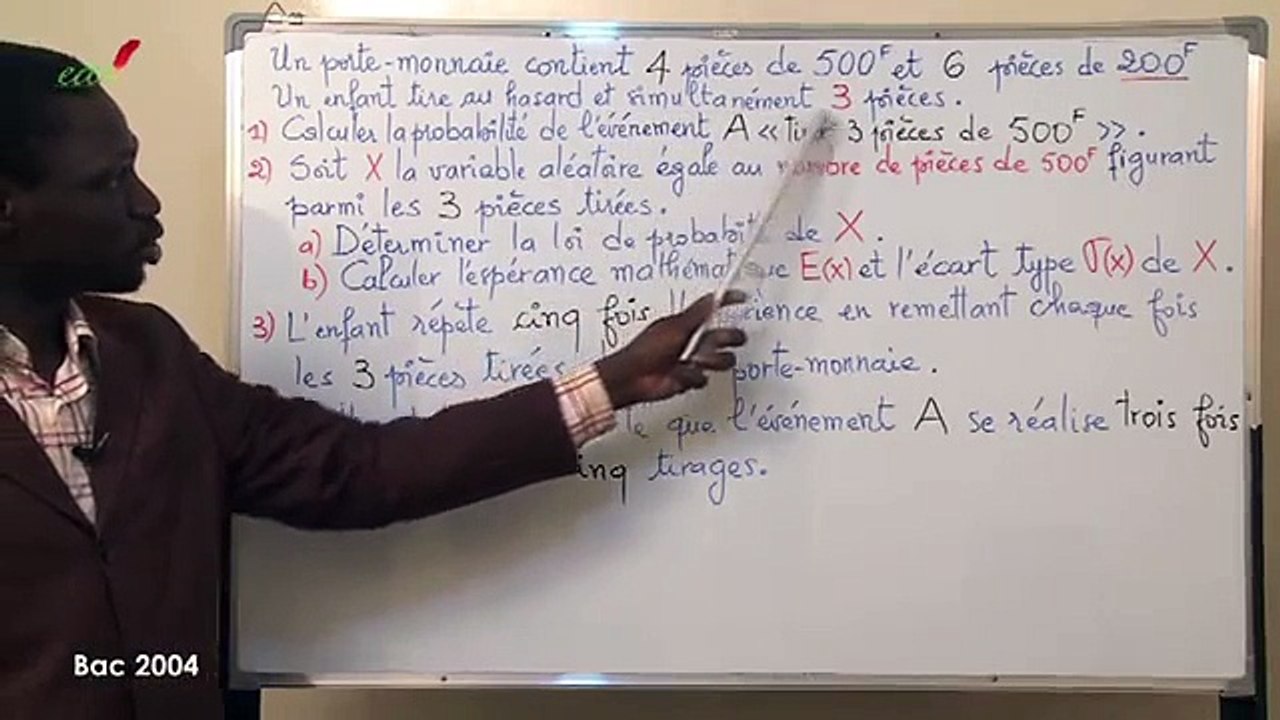 Un porte-monnaie contient 4 pièces de 500F et 6 pièces de 200F
Un enfant tire au hasard et simultanément 3 pièces.
1) Calculer la probabilité de l'événement A << 3 pièces de 500F >>.
2) Soit X la variable aléatoire égale au de pièces de 500F figurant
parmi les 3 pièces tirées.
a) Déterminer la loi de de X.
b) Calculer l'espérance E(x) et l'écart type σ(x) de X.
3) L'enfant répète cinq fois en remettant chaque fois
les 3 pièces tirées porte-monnaie.
que l'événement A se réalise trois fois
tirages.
Bac 2004